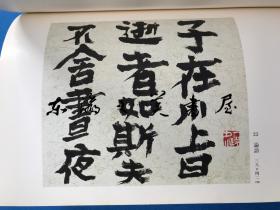 子在川上曰
逝者如斯夫
不舍晝夜
論語